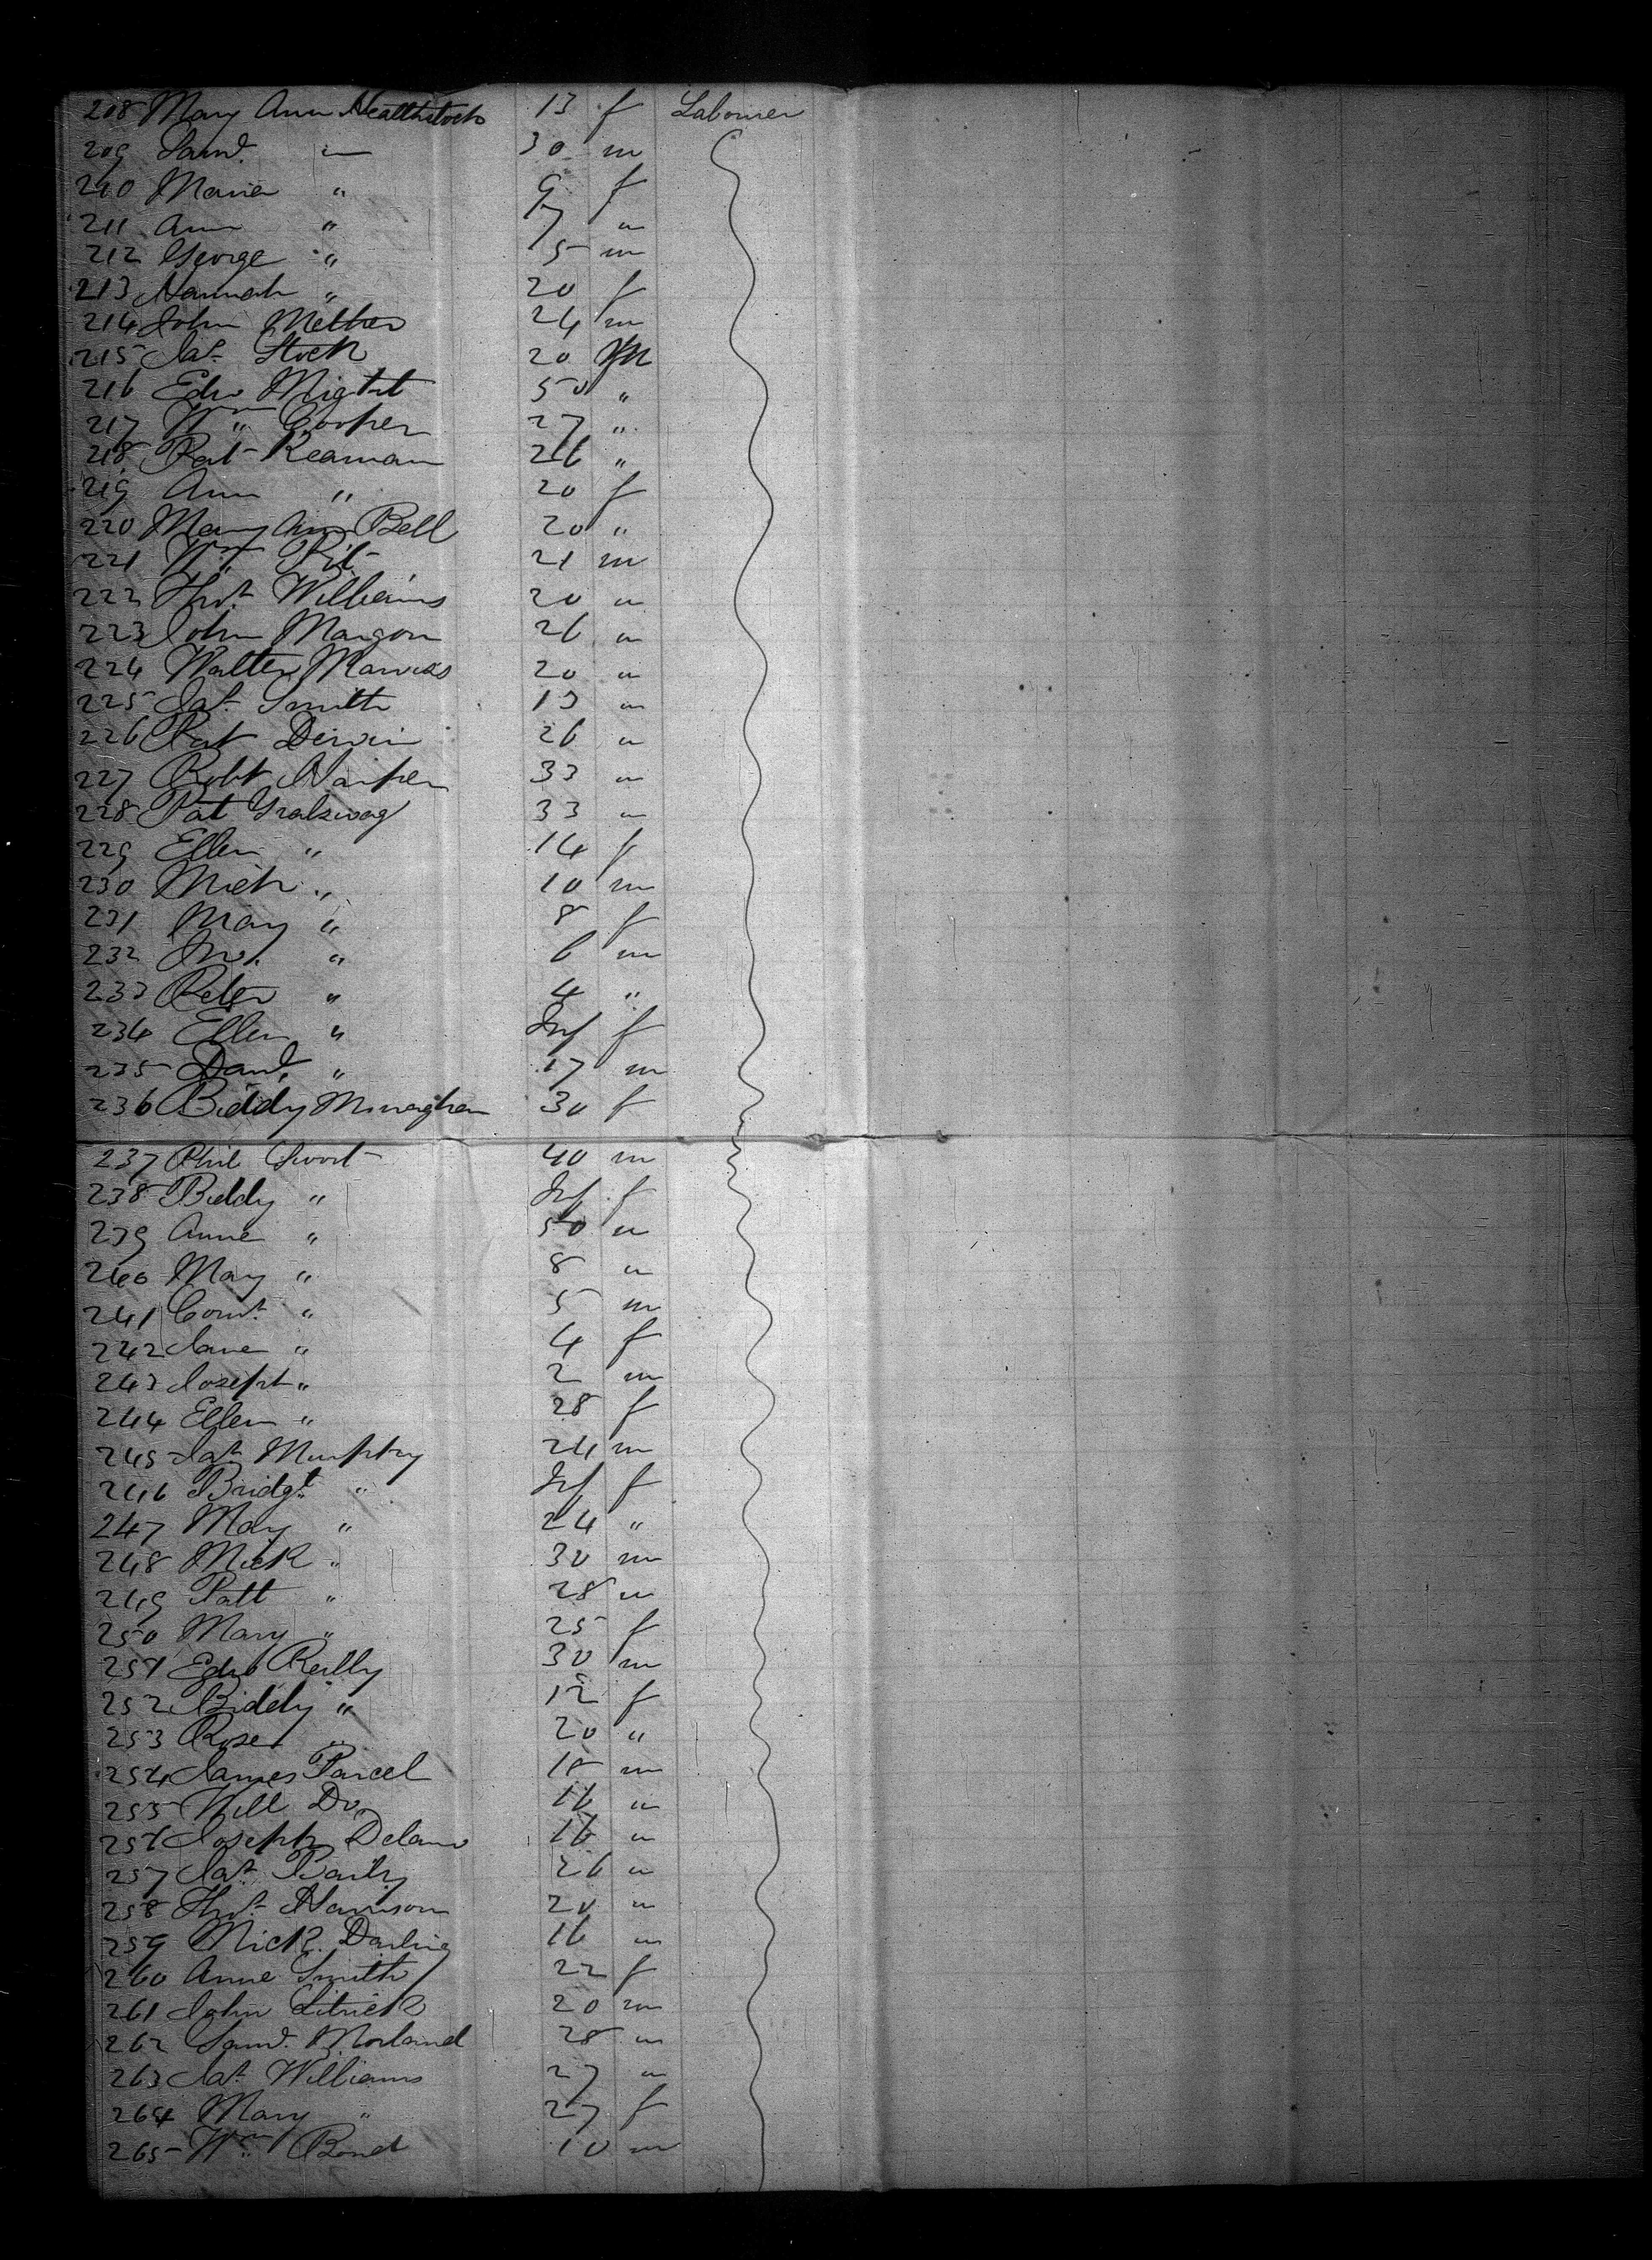 208 Mary Ann Heathstock 13 f Labourer
209 Saml. " 30 m
210 Maria " 9 f
211 Ann " 7 "
212 George " 5 m
213 Hannah " 20 f
214 John Mether 24 m
215 Jas. Stock 20 m
216 Edw 50 "
217 Wm Cooper 27 "
218 Pat Keanan 26 "
219 Ann " 20 f
220 Mary Ann Bell 20 "
221 Wm Pit 21 m
222 Thos. Williams 20 "
223 John Mangon 26 "
224 Walter 20 "
225 Jas. Smith 13 "
226 Pat Dervin 26 "
227 Robt Harper 33 "
228 Pat 33 "
229 Ellen " 14 f
230 Mich " 10 m
231 Mary " 8 f
232 Jno. " 6 m
233 Peter " 4 "
234 Ellen " Inf f
235 Danl. " 17 m
236 Biddy Minaghan 30 f
237 Phil 40 m
238 Biddy " Inf f
239 Anne " 50 "
240 Mary " 8 "
241 " 5 m
242 Jane " 4 f
243 Joseph " 2 m
244 Ellen " 28 f
245 Jas. Murphy 24 m
246 Bridgt. " Inf f
247 Mary " 24 "
248 Mick " 30 m
249 Patt " 28 m
250 Mary " 25 f
251 Edw Reilly 30 m
252 Biddy " 12 f
253 Rose " 20 "
254 James Parcel 18 m
255 Will Do. 16 "
256 Joseph Delano 16 "
257 Jas. Baily 26 "
258 Thos. Harrison 20 "
259 Mick. Darling 16 "
260 Anne Smith 22 f
261 John Litrick 20 m
262 Saml. Morland 28 "
263 Jas. Williams 27 "
264 Mary " 27 f
265 Wm Bond 10 m